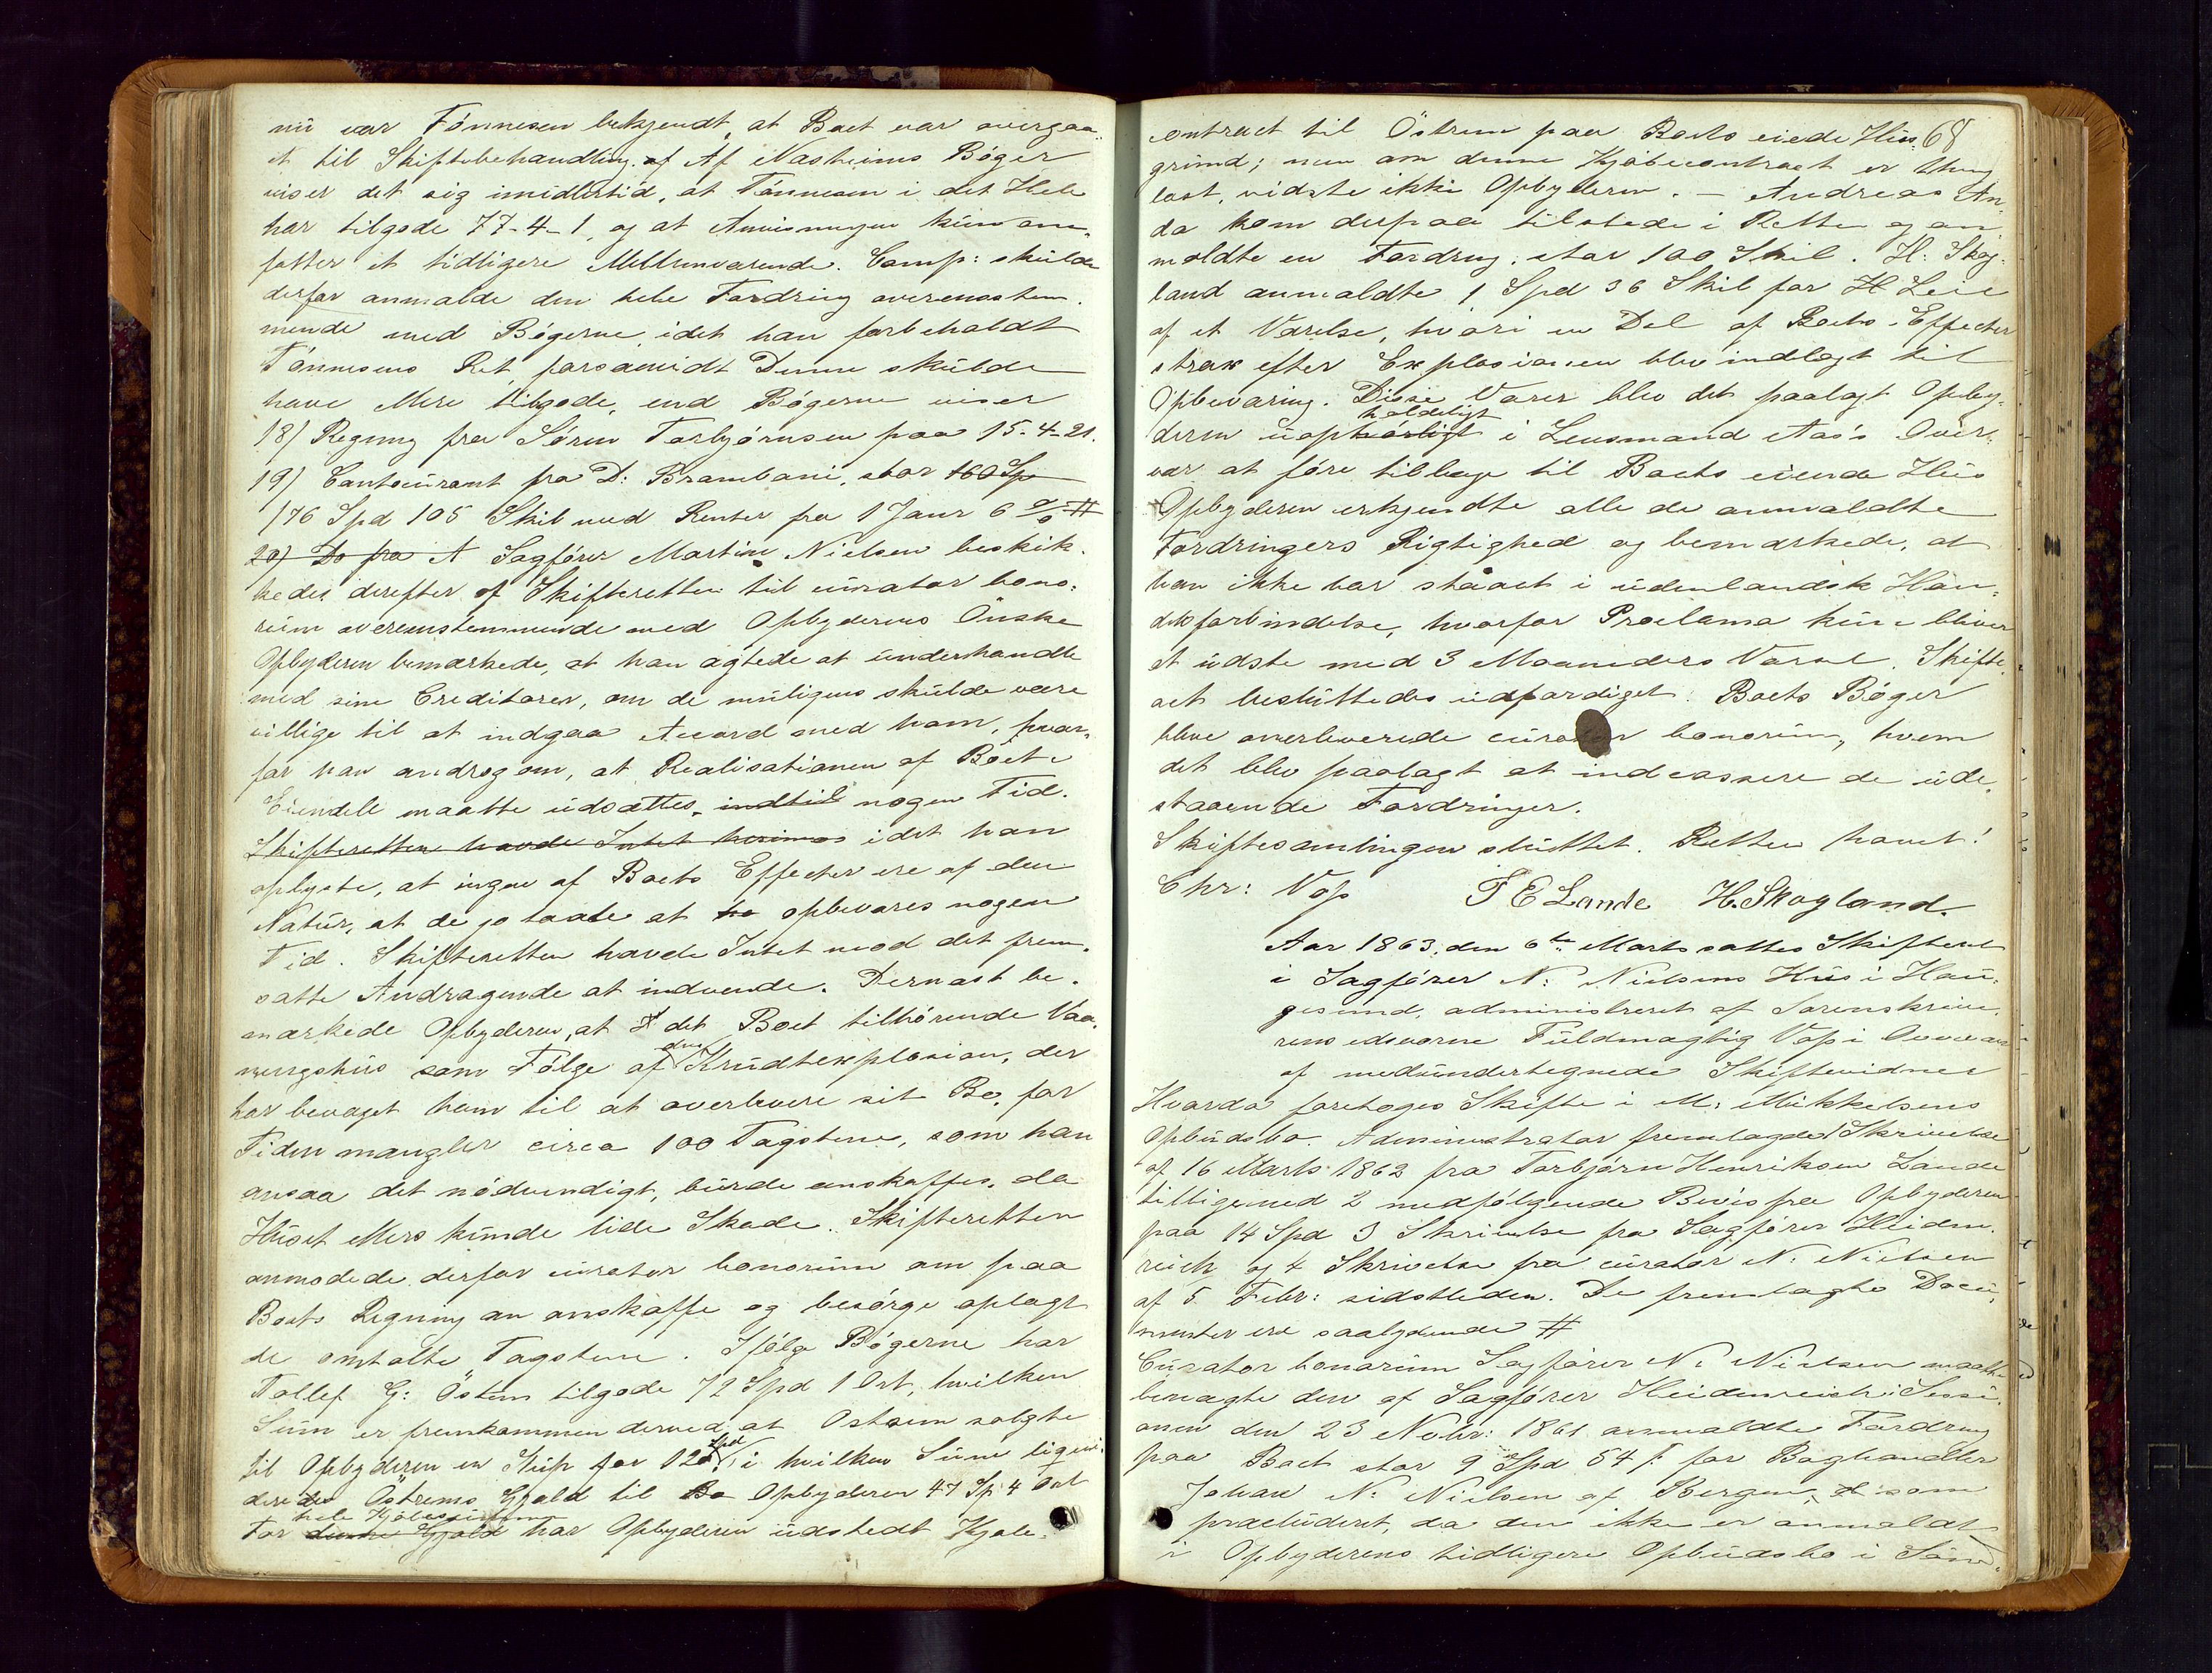 nu var Tónnesen bekjendt, at Boet var overgaa-
et til Skiftebehandling. af Af Nasheims Bóger
viser det sig imidlertid, at Tónnesen i det Hele
har tilgode 77-4-1, og at Anvisningen kun om-
fatter et tidligere Mellemværende. Comp: skulde
derfor anmelde den hele Fordring overensstem-
mende med Bógerne, idet han forbeholdt
Tónnesens Ret, forsaavidt Denne skulde
have Mere tilgode, end Bógerne viser
18/ Regning fra Sóren Torbjórnsen paa 15-4-21.
19/ Contocurant fra D: Brambani, stor 160 Sp
176 Spd 105 Skil med Renter fra 1 Janr 6 % #
20) Do fra A Sagfórer Martin Nielsen beskik-
kedes derefter af Skifteretten til curator bono-
rum overensstemmende med Opbyderens Ónske
Opbyderen bemærkede, at han agtede at underhandle
med sine Creditorer, om de muligens skulde være
villige til at indgaa Accord med ham, hvor-
for han androg om, at Realisationen af Boets
Eiendele maatte udsættes, indtil nogen Tid.
Skifteretten havde Intet herimod idet han
oplyste, at ingen af Boets Effecter ere af den
Natur, at de jo taale at ha opbevares nogen
Tid. Skifteretten havde Intet mod det frem-
satte Andragende at indvende. Dernæst be-
mærkede Opbyderen, at A det Boet tilhórende Vaa-
ningshus som Fólge af den Krudtexplosion, der
har bevæget ham til at overlevere sit Bo, for
Tiden mangler circa 100 Tagstene, som han
ansaa det nódvendigt, burde anskaffes, da
Huset Mers kunde lide Skade. Skifteretten
anmodede derfor curator bonorum om paa
Boets Regning an anskaffe og besórge oplagt
de omtalte Tagstene. Ifólge Bógerne har
Tollef G: Óstem tilgode 72 Spd 1 Ort, hvilken
Sum er fremkommen derved, at Ostrem solgte
til Opbyderen en Skip for 120 Spd, i hvilken Sum liqvi-
deredes Óstrems Gjæld til Bo Opbyderen 47 Sp 4 Ort
For denne Gjæld hele Kjóbesummen har Opbyderen udstedt Kjóbe-
68
contract til Óstrem paa Boets eiede Hus-
grund; men om denne Kjóbecontract er thing-
læst, vidste ikke Opbyderen. — Andreas An-
da kom derpaa tilstede i Retten og an-
meldte en Fordring, stor 100 Skil. H: Skog-
land anmeldte 1 Spd 36 Skil for H Leie
af et Værelse, hvori en Del af Boets Effecter
strax efter Explosionen blev indlagt til
Opbevaring. Disse Varer blev det paalagt Opby-
deren uophórligt holdeligt i Lensmand Aas's Over-
vær at fóre tilbage til Boets eiende Hus
Opbyderen erkjendte alle de anmeldte
Fordringers Rigtighed og bemærkede, at
han ikke har staaet i udenlandsk Han-
delsforbindelse, hvorfor Proclama kun bliver
at udste med 3 Maaneders Varsel. Skifte
aet besluttedes udfærdiget. Boets Bóger
bleve overleverede curator bonorum, hvem
det blev paalagt at indcassere de ude-
staaende Fordringer.
Skiftesamlingen sluttet. Retten hævet!
Chr: Voss T E Lande H. Skogland.
Aar 1863, den 6te Marts sattes Skifteret
i Sagfórer N: Nielsens Hus i Hau-
gesund, administreret af Sorenskrive-
rens edsvorne Fuldmægtig Voss i Overvær
af medundertegnede Skiftevidner
Hvorda foretoges Skifte i M: Mikkelsens
Opbudsbo. Administrator fremlagde 1 Skrivelse
af 16 Marts 1862 fra Torbjórn Henriksen Lande
tilligemed 2 medfólgende Bevis fra Opbyderen
paa 14 Spd 3 Skrivelse fra Sagfórer Heiden-
reich og 4 Skrivelse fra curator N: Nielsen
af 5 Febr: sidstleden. De fremlagte Docu-
menter ere saalydende #
Curator bonorum Sagfórer N: Nielsen maatte
benægte den af Sagfórer Heidenreich i Sessi-
onen den 23 Novbr: 1861 anmeldte Fordring
paa Boet stor 9 Spd 54 s: for Boghandler
Johan N: Nielsen af Bergen, som
præcluderet, da den ikke er anmeldt
i Opbyderens tidligere Opbudsbo i Són-